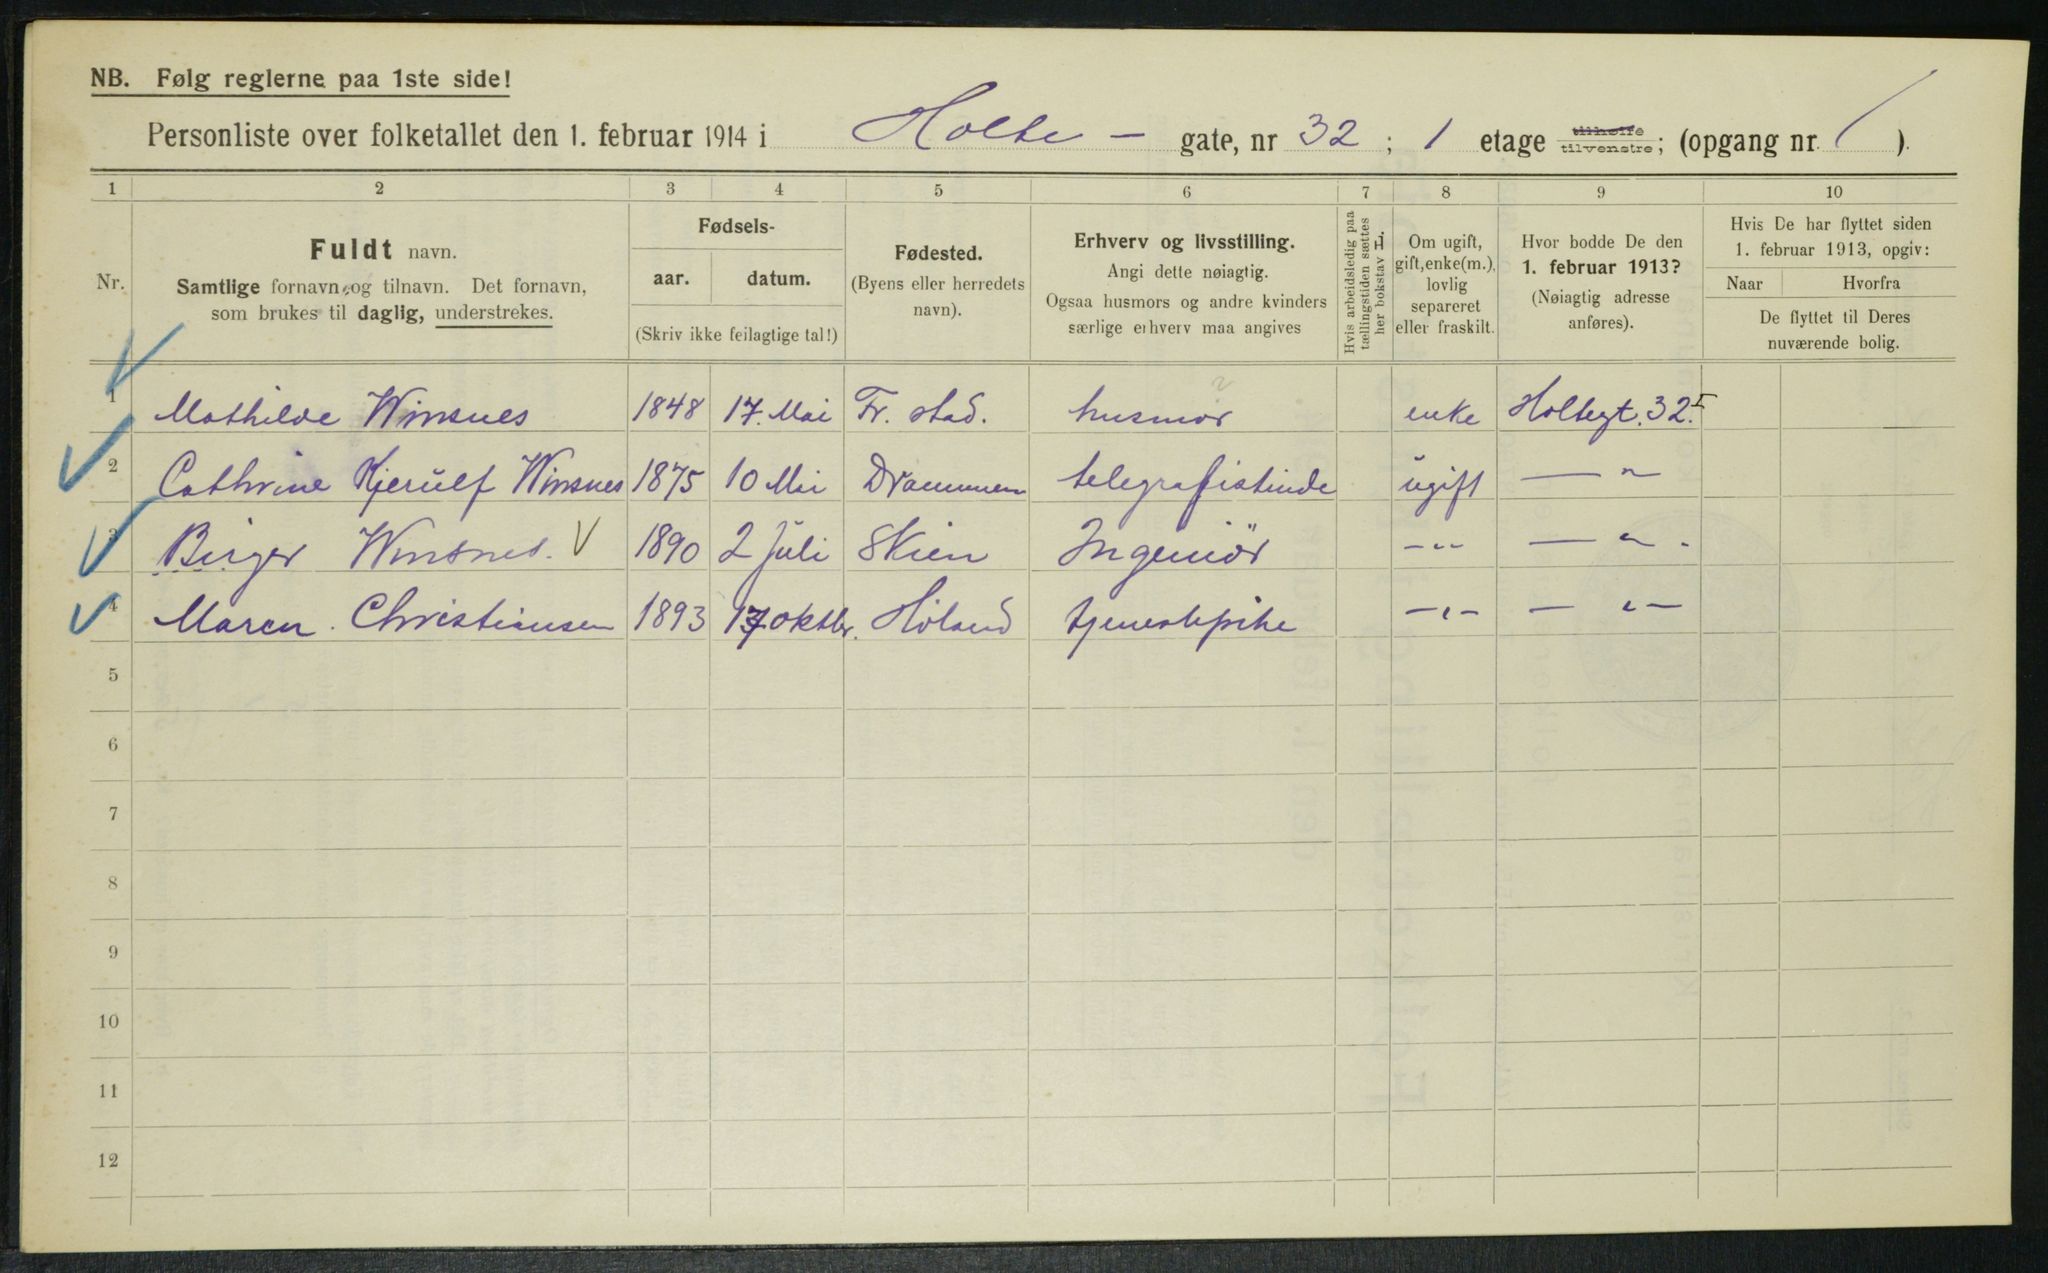 NB. Følg reglerne paa 1ste side!
Personliste over folketallet den 1. februar 1914 i Holte - gate, nr 32 ; 1 etage tilhøire tilvenstre ; (opgang nr. / ).
1 2 3 4 5 6 7 8 9 10
Nr.
Fuldt navn.
Samtlige fornavn og tilnavn. Det fornavn,
som brukes til daglig, understrekes.
Fødsels-
aar. datum.
(Skriv ikke feilagtige tal!)
Fødested.
(Byens eller herredets
navn).
Erhverv og livsstilling.
Angi dette nøiagtig.
Ogsaa husmors og andre kvinders
særlige erhverv maa angives
Hvis arbeidsledig paa
tællingstiden sættes
her bokstav L.
Om ugift,
gift, enke(m.),
lovlig
separeret
eller fraskilt.
Hvor bodde De den
1. februar 1913?
(Nøiagtig adresse
anføres).
Hvis De har flyttet siden
1. februar 1913, opgiv:
Naar Hvorfra
De flyttet til Deres
nuværende bolig.
1 Mathilde Winsnes 1848 17. Mai Fr. stad. husmor enke Holtegt. 32 I
2 Cathrine Kjerulf Winsnes 1875 10 Mai Drammen telegrafistinde ugift — " —
3 Birger Winsnes. V 1890 2 Juli Skien Ingeniör — " — — " —
4 Maren Christiansen 1893 17 oktbr. Höland tjenestepike — " — — " —
5
6
7
8
9
10
11
12